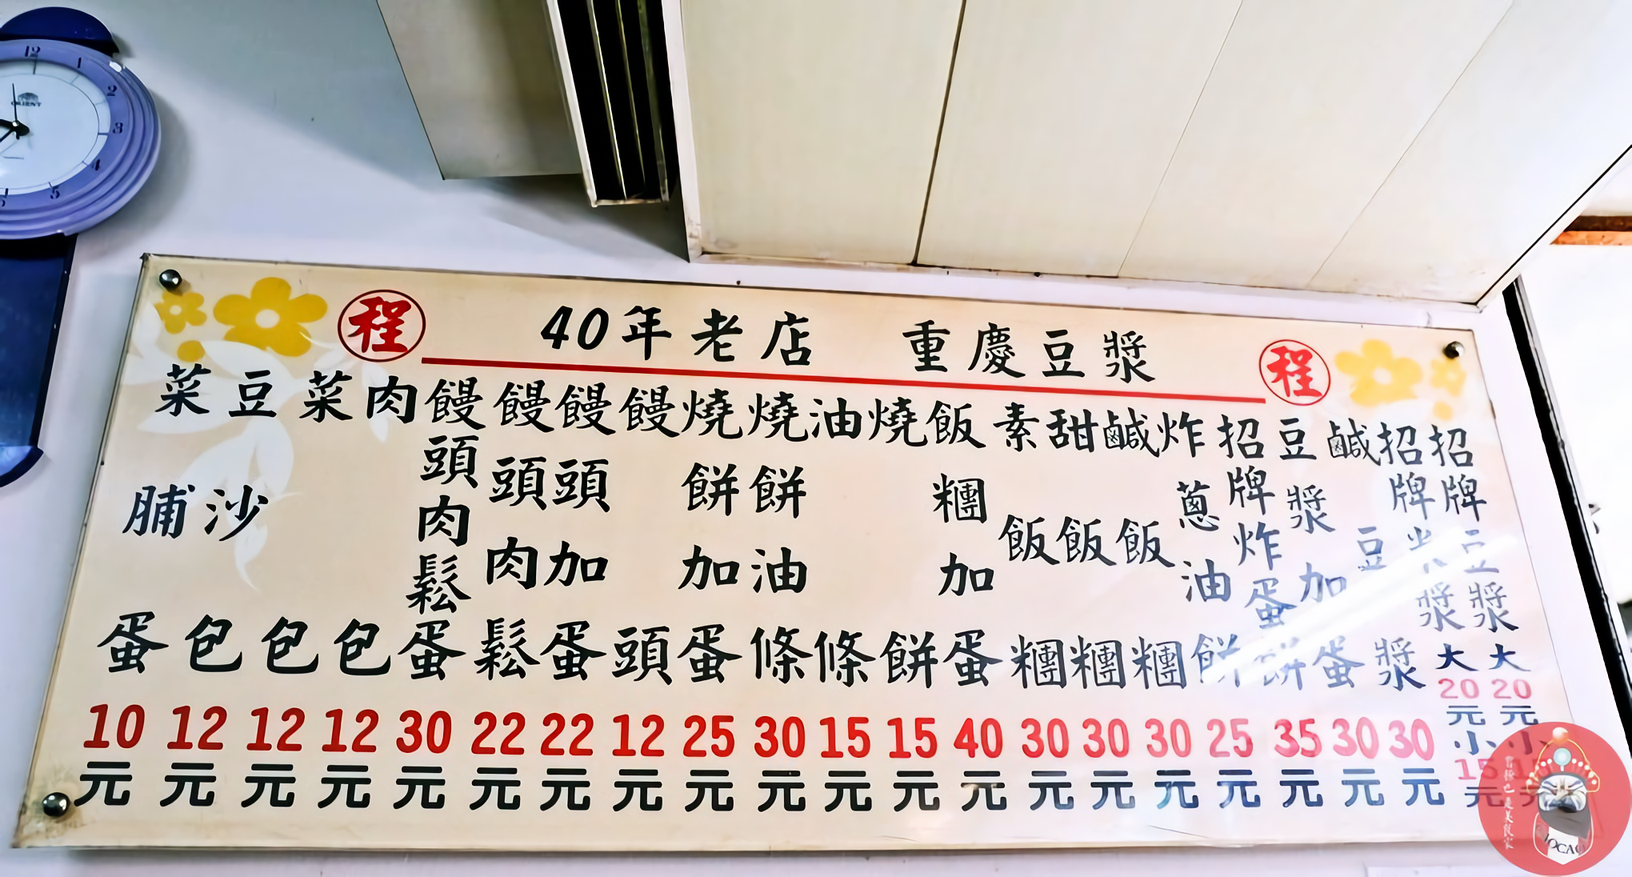 12
1
2
3
4
5
ORIENT
程 40年老店 重慶豆漿 程
招牌豆漿 大20元 小15元
招牌米漿 大20元 小15元
鹹豆漿 30元
豆漿加蛋 30元
招牌炸蛋餅 35元
炸蔥油餅 25元
鹹飯糰 30元
甜飯糰 30元
素飯糰 30元
飯糰加蛋 40元
燒餅 15元
油條 15元
燒餅油條 30元
燒餅加蛋 25元
饅頭 12元
饅頭加蛋 22元
饅頭肉鬆 22元
饅頭肉鬆蛋 30元
肉包 12元
菜包 12元
豆沙包 12元
菜脯蛋 10元